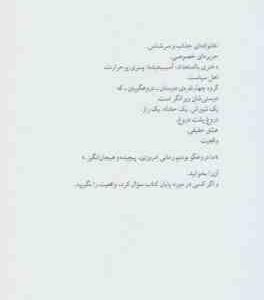 خانواده‌ای جذاب و سرشناس.
جزیره‌ای خصوصی.
دختری بااستعداد، آسیب‌دیده؛ پسری پرحرارت،
اهل سیاست.
گروه چهارنفره‌ی دوستان ـ دروغگویان ـ که
دوستی‌شان ویرانگر است.
یک شورش. یک حادثه. یک راز.
دروغ پشت دروغ.
عشق حقیقی.
واقعیت.
«ما دروغگو بودیم رمانی امروزی، پیچیده و هیجان‌انگیز.»
آن را بخوانید.
و اگر کسی در مورد پایان کتاب سؤال کرد، واقعیت را نگویید.